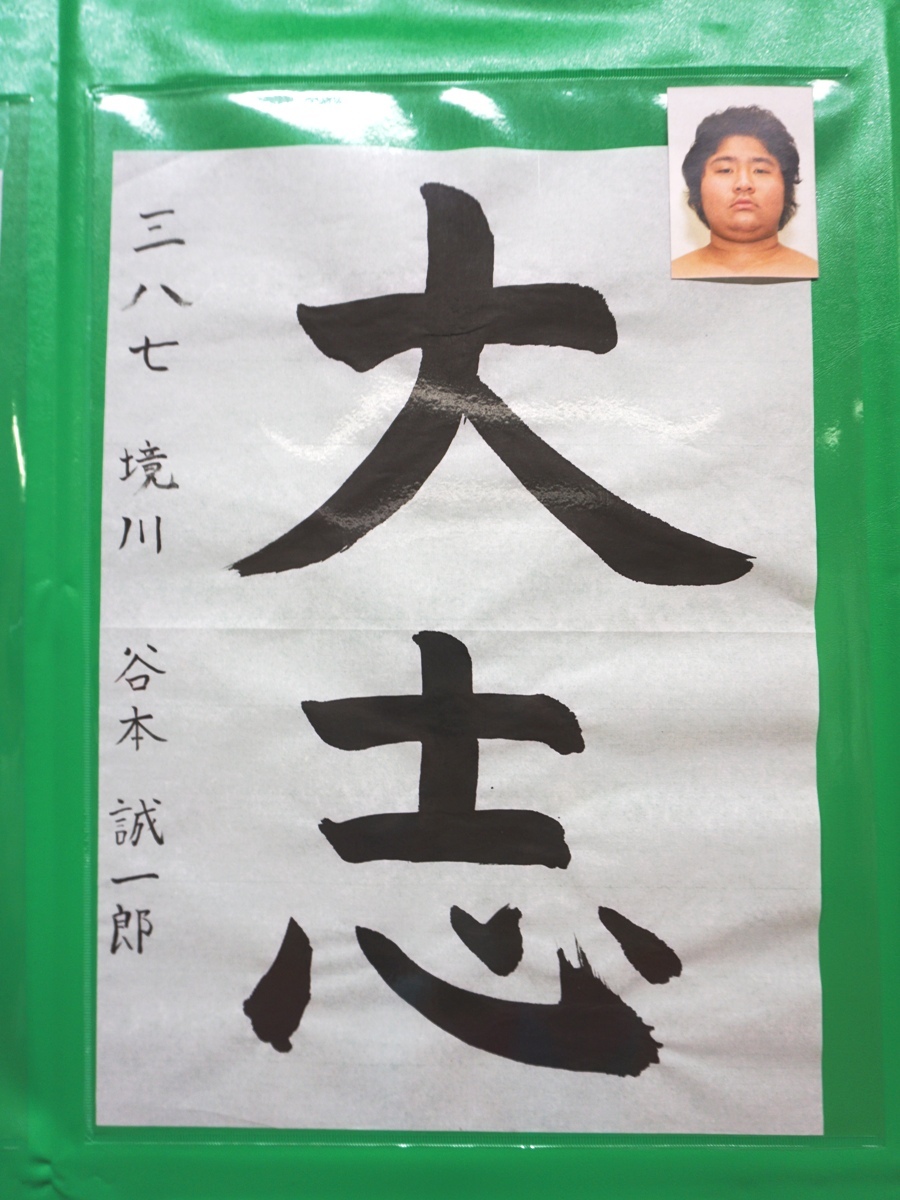 大志
三八七 境川 谷本 誠一郎